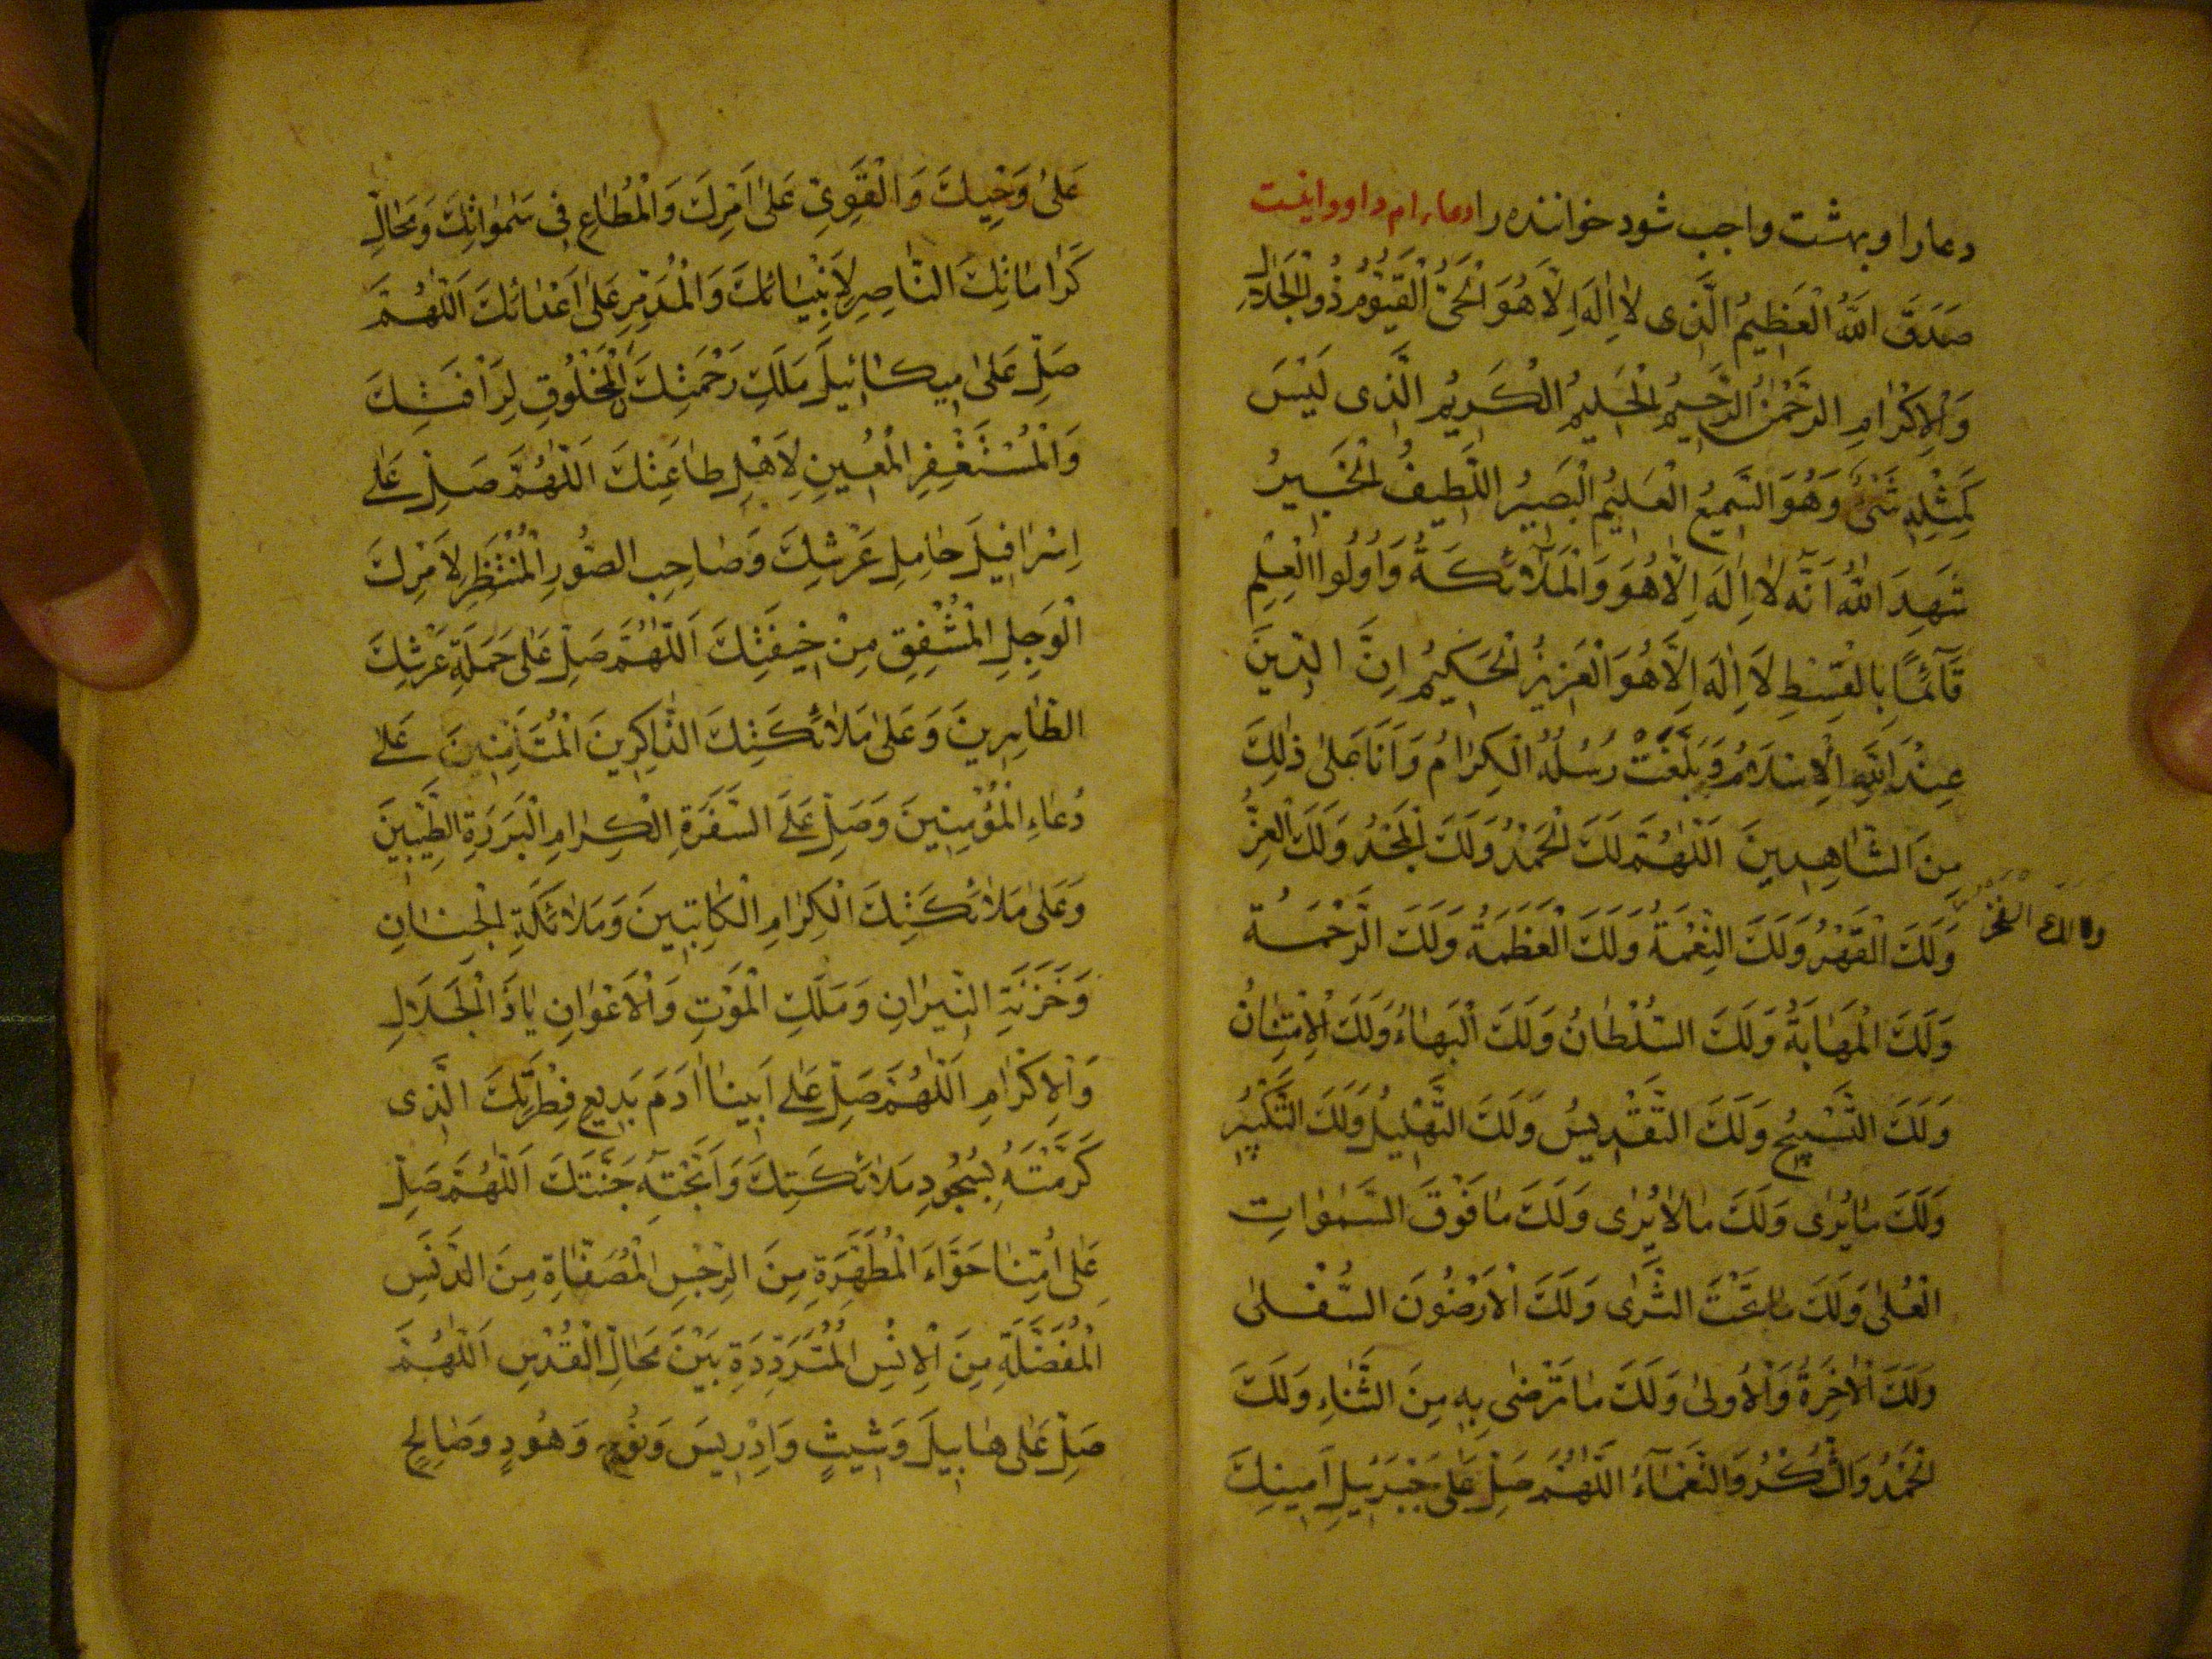 دعا را و بهشت واجب شود خواننده را دعاء ام داوود اینست
صَدَقَ اللّٰهُ الْعَظِیمُ الَّذِی لَا اِلٰهَ اِلَّا هُوَ الْحَیُّ الْقَیُّومُ ذُو الْجَلَالِ
وَالْاِکْرَامِ الرَّحْمٰنُ الرَّحِیمُ الْحَلِیمُ الْکَرِیمُ الَّذِی لَیْسَ
کَمِثْلِهِ شَیْءٌ وَهُوَ السَّمِیعُ الْعَلِیمُ الْبَصِیرُ اللَّطِیفُ الْخَبِیرُ
شَهِدَ اللّٰهُ اَنَّهُ لَا اِلٰهَ اِلَّا هُوَ وَالْمَلٰٓائِکَةُ وَاُولُوا الْعِلْمِ
قَآئِمًا بِالْقِسْطِ لَا اِلٰهَ اِلَّا هُوَ الْعَزِیزُ الْحَکِیمُ اِنَّ الدِّینَ
عِنْدَ اللّٰهِ الْاِسْلَامُ وَبَلَّغَتْ رُسُلُهُ الْکِرَامُ وَاَنَا عَلٰی ذٰلِکَ
مِنَ الشَّاهِدِینَ اَللّٰهُمَّ لَکَ الْحَمْدُ وَلَکَ الْمَجْدُ وَلَکَ الْعِزُّ
وَلَکَ الْفَخْرُ
وَلَکَ الْقَهْرُ وَلَکَ النِّعْمَةُ وَلَکَ الْعَظَمَةُ وَلَکَ الرَّحْمَةُ
وَلَکَ الْمَهَابَةُ وَلَکَ السُّلْطَانُ وَلَکَ الْبَهَاءُ وَلَکَ الْاِمْتِنَانُ
وَلَکَ التَّسْبِیحُ وَلَکَ التَّقْدِیسُ وَلَکَ التَّهْلِیلُ وَلَکَ التَّکْبِیرُ
وَلَکَ مَا یُرٰی وَلَکَ مَا لَا یُرٰی وَلَکَ مَا فَوْقَ السَّمٰوَاتِ
الْعُلٰی وَلَکَ مَا تَحْتَ الثَّرٰی وَلَکَ الْاَرَضُونَ السُّفْلٰی
وَلَکَ الْاٰخِرَةُ وَالْاُولٰی وَلَکَ مَا تَرْضٰی بِهِ مِنَ الثَّنَاءِ وَلَکَ
الْحَمْدُ وَالشُّکْرُ وَالنَّعْمَآءُ اَللّٰهُمَّ صَلِّ عَلٰی جَبْرَئِیلَ اَمِینِکَ
عَلٰی وَحْیِکَ وَالْقَوِیِّ عَلٰی اَمْرِکَ وَالْمُطَاعِ فِی سَمٰوَاتِکَ وَمَحَالِّ
کَرَامَاتِکَ النَّاصِرِ لِاَنْبِیَائِکَ وَالْمُدَمِّرِ عَلٰی اَعْدَائِکَ اَللّٰهُمَّ
صَلِّ عَلٰی مِیکَائِیلَ مَلَکِ رَحْمَتِکَ الْمَخْلُوقِ لِرَاْفَتِکَ
وَالْمُسْتَغْفِرِ الْمُعِینِ لِاَهْلِ طَاعَتِکَ اَللّٰهُمَّ صَلِّ عَلٰی
اِسْرَافِیلَ حَامِلِ عَرْشِکَ وَصَاحِبِ الصُّورِ الْمُنْتَظِرِ لِاَمْرِکَ
الْوَجِلِ الْمُشْفِقِ مِنْ خِیفَتِکَ اَللّٰهُمَّ صَلِّ عَلٰی حَمَلَةِ عَرْشِکَ
الطَّاهِرِینَ وَعَلٰی مَلَائِکَتِکَ الذَّاکِرِینَ الْمُتَاَمِّنِینَ عَلٰی
دُعَاءِ الْمُؤْمِنِینَ وَصَلِّ عَلَی السَّفَرَةِ الْکِرَامِ الْبَرَرَةِ الطَّیِّبِینَ
وَعَلٰی مَلَائِکَتِکَ الْکِرَامِ الْکَاتِبِینَ وَمَلَائِکَةِ الْجِنَانِ
وَخَزَنَةِ النِّیرَانِ وَمَلَکِ الْمَوْتِ وَالْاَعْوَانِ یَا ذَا الْجَلَالِ
وَالْاِکْرَامِ اَللّٰهُمَّ صَلِّ عَلٰی اَبِینَا اٰدَمَ بَدِیعِ فِطْرَتِکَ الَّذِی
کَرَّمْتَهُ بِسُجُودِ مَلَائِکَتِکَ وَاَبَحْتَهُ جَنَّتَکَ اَللّٰهُمَّ صَلِّ
عَلٰی اُمِّنَا حَوَّاءَ الْمُطَهَّرَةِ مِنَ الرِّجْسِ الْمُصَفَّاةِ مِنَ الدَّنَسِ
الْمُفَضَّلَةِ مِنَ الْاِنْسِ الْمُتَرَدِّدَةِ بَیْنَ مَحَالِّ الْقُدْسِ اَللّٰهُمَّ
صَلِّ عَلٰی هَابِیلَ وَشِیثٍ وَاِدْرِیسَ وَنُوحٍ وَهُودٍ وَصَالِحٍ